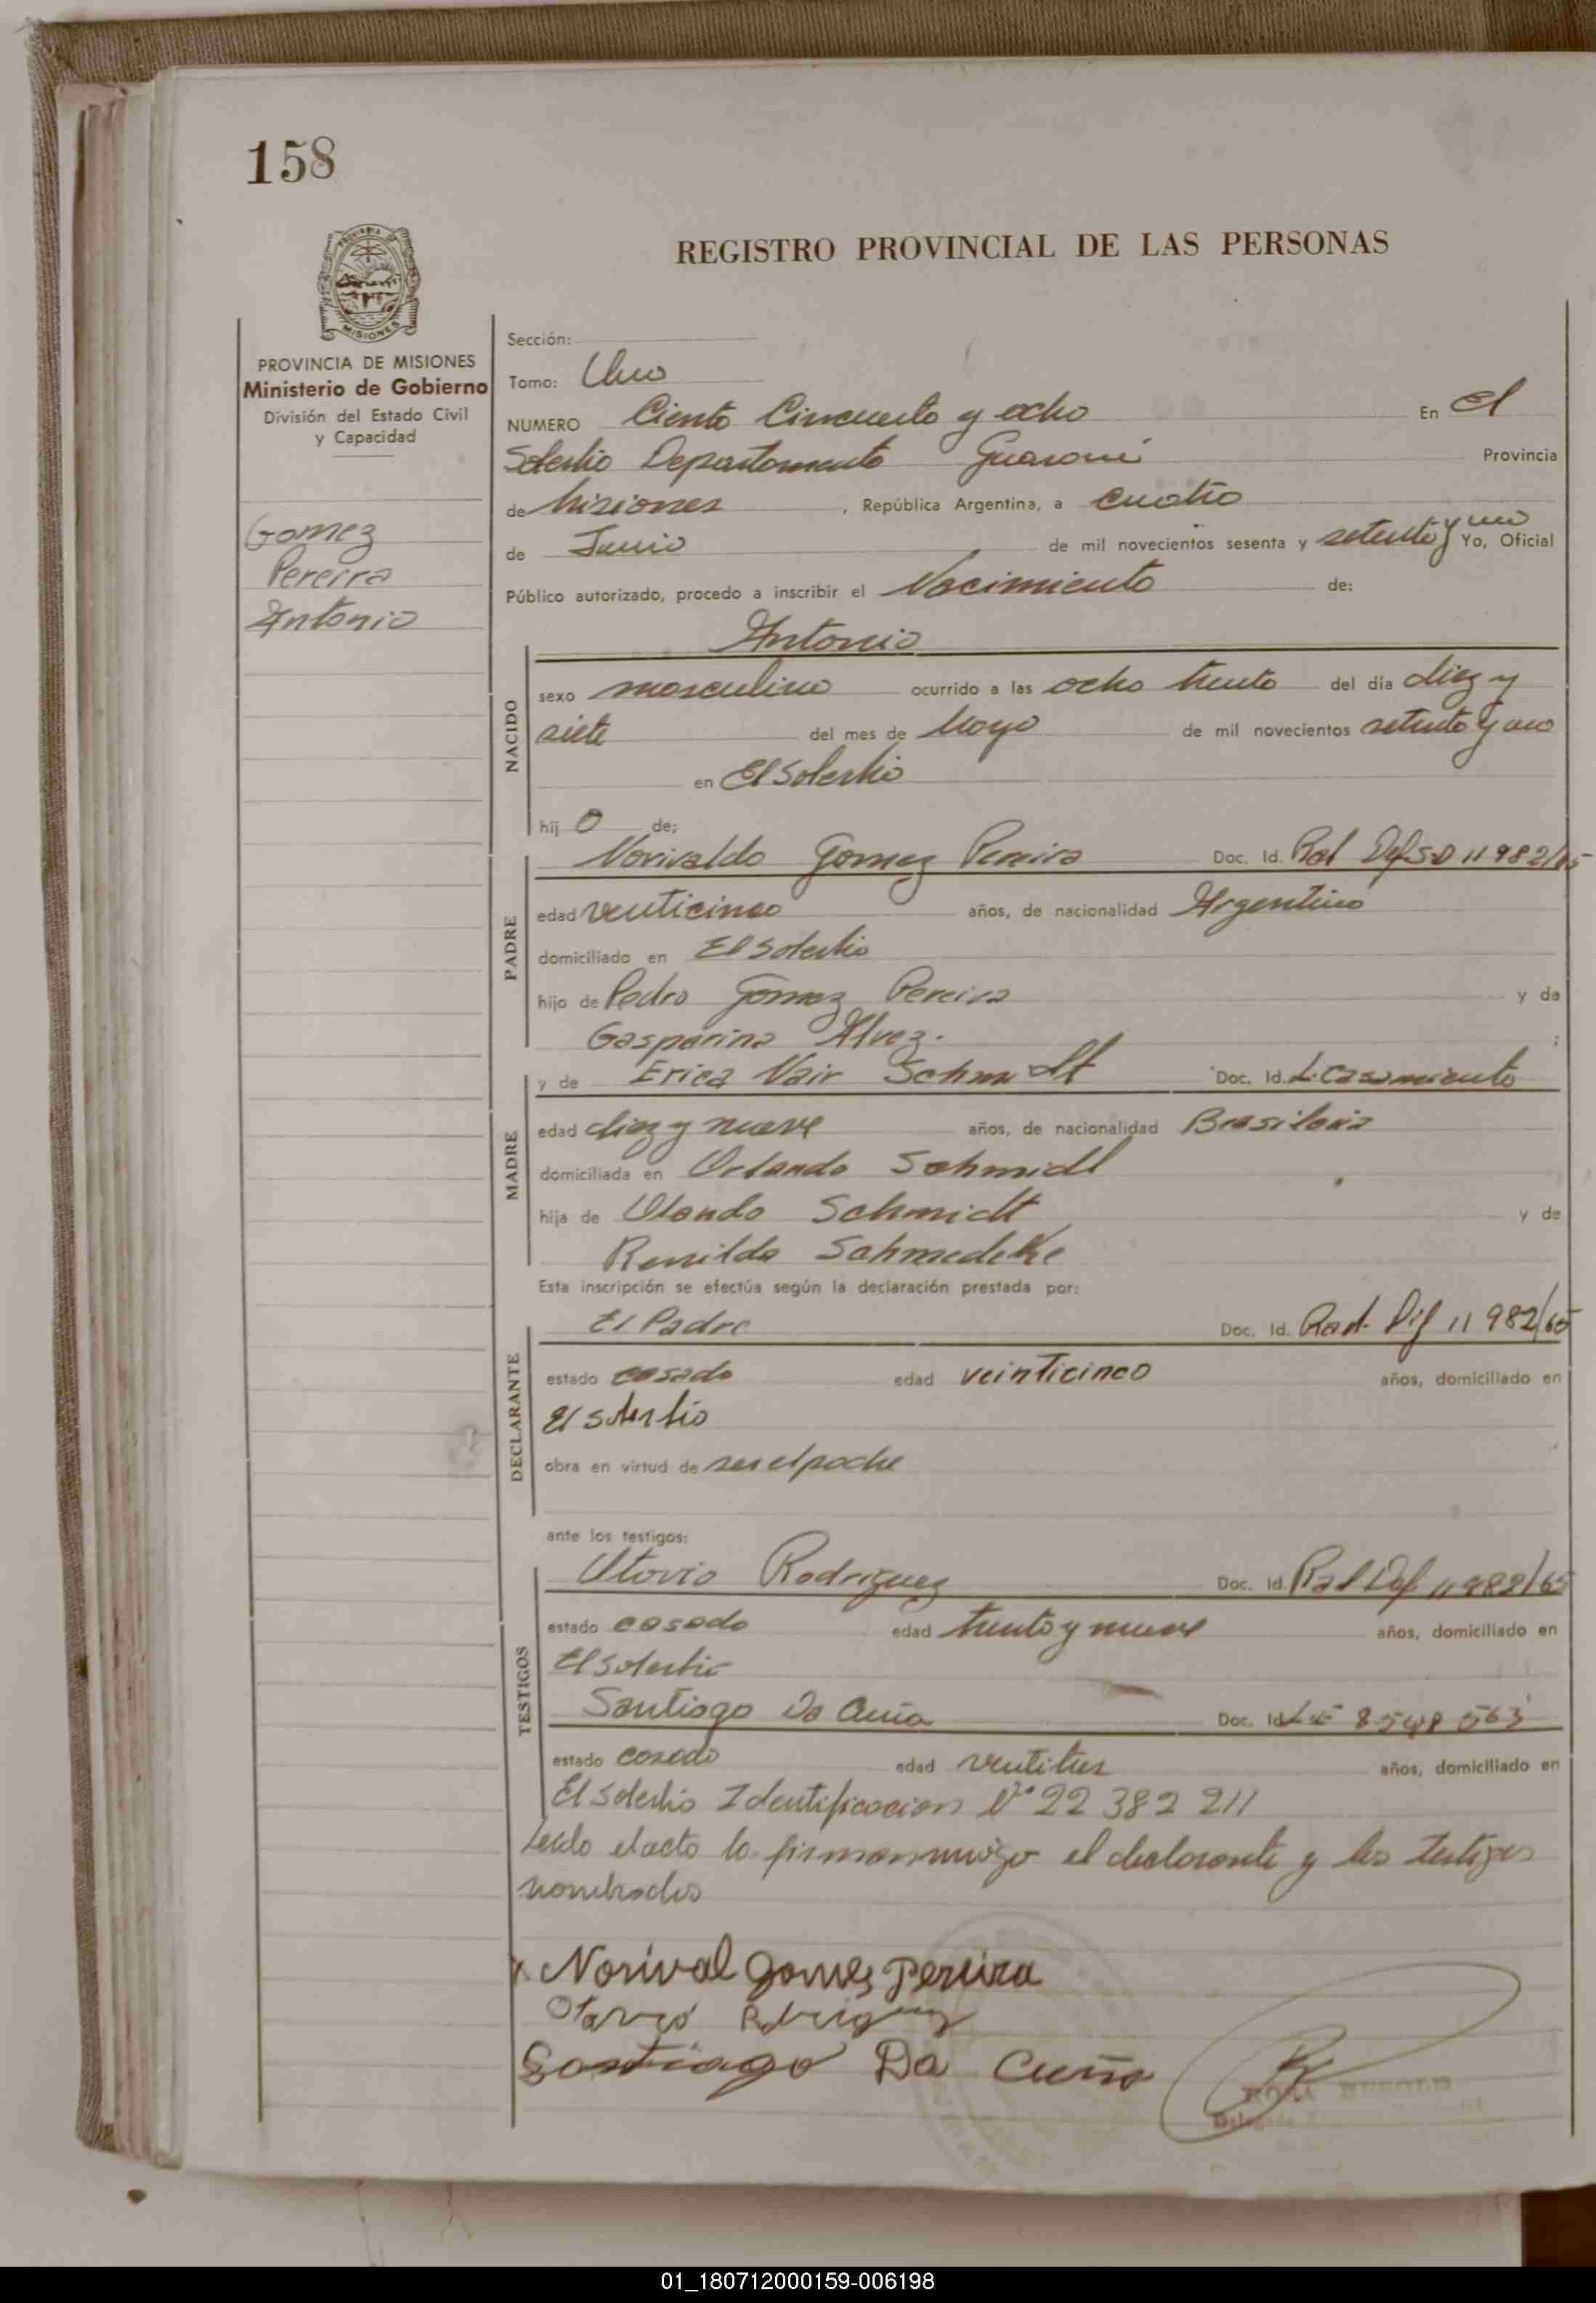 158
REGISTRO PROVINCIAL DE LAS PERSONAS
MISIONES
PROVINCIA DE MISIONES
Ministerio de Gobierno
División del Estado Civil
y Capacidad
Gomez
Pereira
Antonio
Sección:
Tomo: Uno
NUMERO Ciento Cincuenta y ocho En El
Soberbio Departamento Guarani Provincia
de Misiones, República Argentina, a cuatro
de Junio de mil novecientos sesenta y setenta y uno Yo, Oficial
Público autorizado, procedo a inscribir el Nacimiento de:
Antonio
NACIDO
sexo masculino ocurrido a las ocho treinta del día diez y
siete del mes de Mayo de mil novecientos setenta y uno
en El Soberbio
hij o de;
PADRE
Norivaldo Gomez Pereira Doc. Id. 11982/65
edad venticinco años, de nacionalidad Argentino
domiciliado en El Soberbio
hijo de Pedro Gomez Pereira y de
Gasparina Alvez. ;
MADRE
y de Erica Nair Schmidt Doc. Id. L. Casamiento
edad diez y nueve años, de nacionalidad Brasileña
domiciliada en Orlando Schmidt
hija de Olando Schmidt y de
Renilda
Esta inscripción se efectúa según la declaración prestada por:
DECLARANTE
El Padre Doc. Id. 11982/65
estado casado edad veinticinco años, domiciliado en
El Soberbio
obra en virtud de ser el padre
ante los testigos:
TESTIGOS
Otavio Rodriguez Doc. Id.
estado casado edad treinta y nueve años, domiciliado en
El Soberbio
Santiago Da Cuña Doc. Id. LE 8 548 563
estado casado edad ventitres años, domiciliado en
El Soberbio Identificacion Nº 22 382 211
Leido el acto lo firman conmigo el declarante y los testigos
nombrados
x Norival Gomes Pereira
Otavio Rodriguez
Santiago Da Cuña
01_180712000159-006198